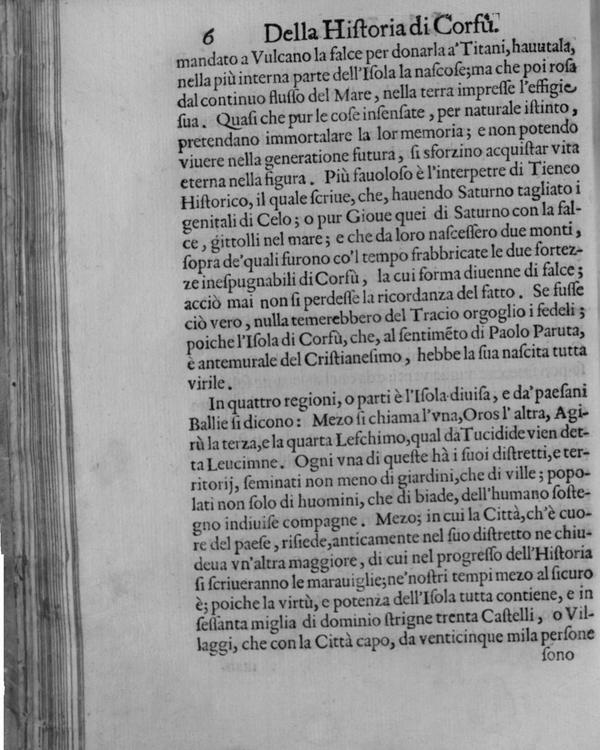 6 Della Hiſtoria di Corfù.
mandato a Vulcano la falce per donarla a' Titani, hauutala,
nella più interna parte dell'Iſola la naſcoſe; ma che poi roſa
dal continuo fluſſo del Mare, nella terra impreſſe l'effigie
ſua. Quaſi che pur le coſe inſenſate, per naturale iſtinto,
pretendano immortalare la lor memoria; e non potendo
viuere nella generatione futura, ſi sforzino acquiſtar vita
eterna nella figura. Più fauoloſo è l'interpetre di Tieneo
Hiſtorico, il quale ſcriue, che, hauendo Saturno tagliato i
genitali di Celo; o pur Gioue quei di Saturno con la fal-
ce, gittolli nel mare; e che da loro naſceſſero due monti,
ſopra de'quali furono co'l tempo frabbricate le due fortez-
ze ineſpugnabili di Corfù, la cui forma diuenne di falce;
acciò mai non ſi perdeſſe la ricordanza del fatto. Se fuſſe
ciò vero, nulla temerebbero del Tracio orgoglio i fedeli;
poiche l'Iſola di Corfù, che, al ſentimẽto di Paolo Paruta,
è antemurale del Criſtianeſimo, hebbe la ſua naſcita tutta
virile.
In quattro regioni, o parti è l'Iſola diuiſa, e da' paeſani
Ballie ſi dicono: Mezo ſi chiama l'vna, Oros l'altra, Agi-
rù la terza, e la quarta Lefchimo, qual da Tucidide vien det-
ta Leucimne. Ogni vna di queſte hà i ſuoi diſtretti, e ter-
ritorij, ſeminati non meno di giardini, che di ville; popo-
lati non ſolo di huomini, che di biade, dell'humano ſoſte-
gno indiuiſe compagne. Mezo; in cui la Città, ch'è cuo-
re del paeſe, riſiede, anticamente nel ſuo diſtretto ne chiu-
deua vn'altra maggiore, di cui nel progreſſo dell'Hiſtoria
ſi ſcriueranno le marauiglie; ne'noſtri tempi mezo al ſicuro
è; poiche la virtù, e potenza dell'Iſola tutta contiene, e in
ſeſſanta miglia di dominio ſtrigne trenta Caſtelli, o Vil-
laggi, che con la Città capo, da venticinque mila perſone
ſono